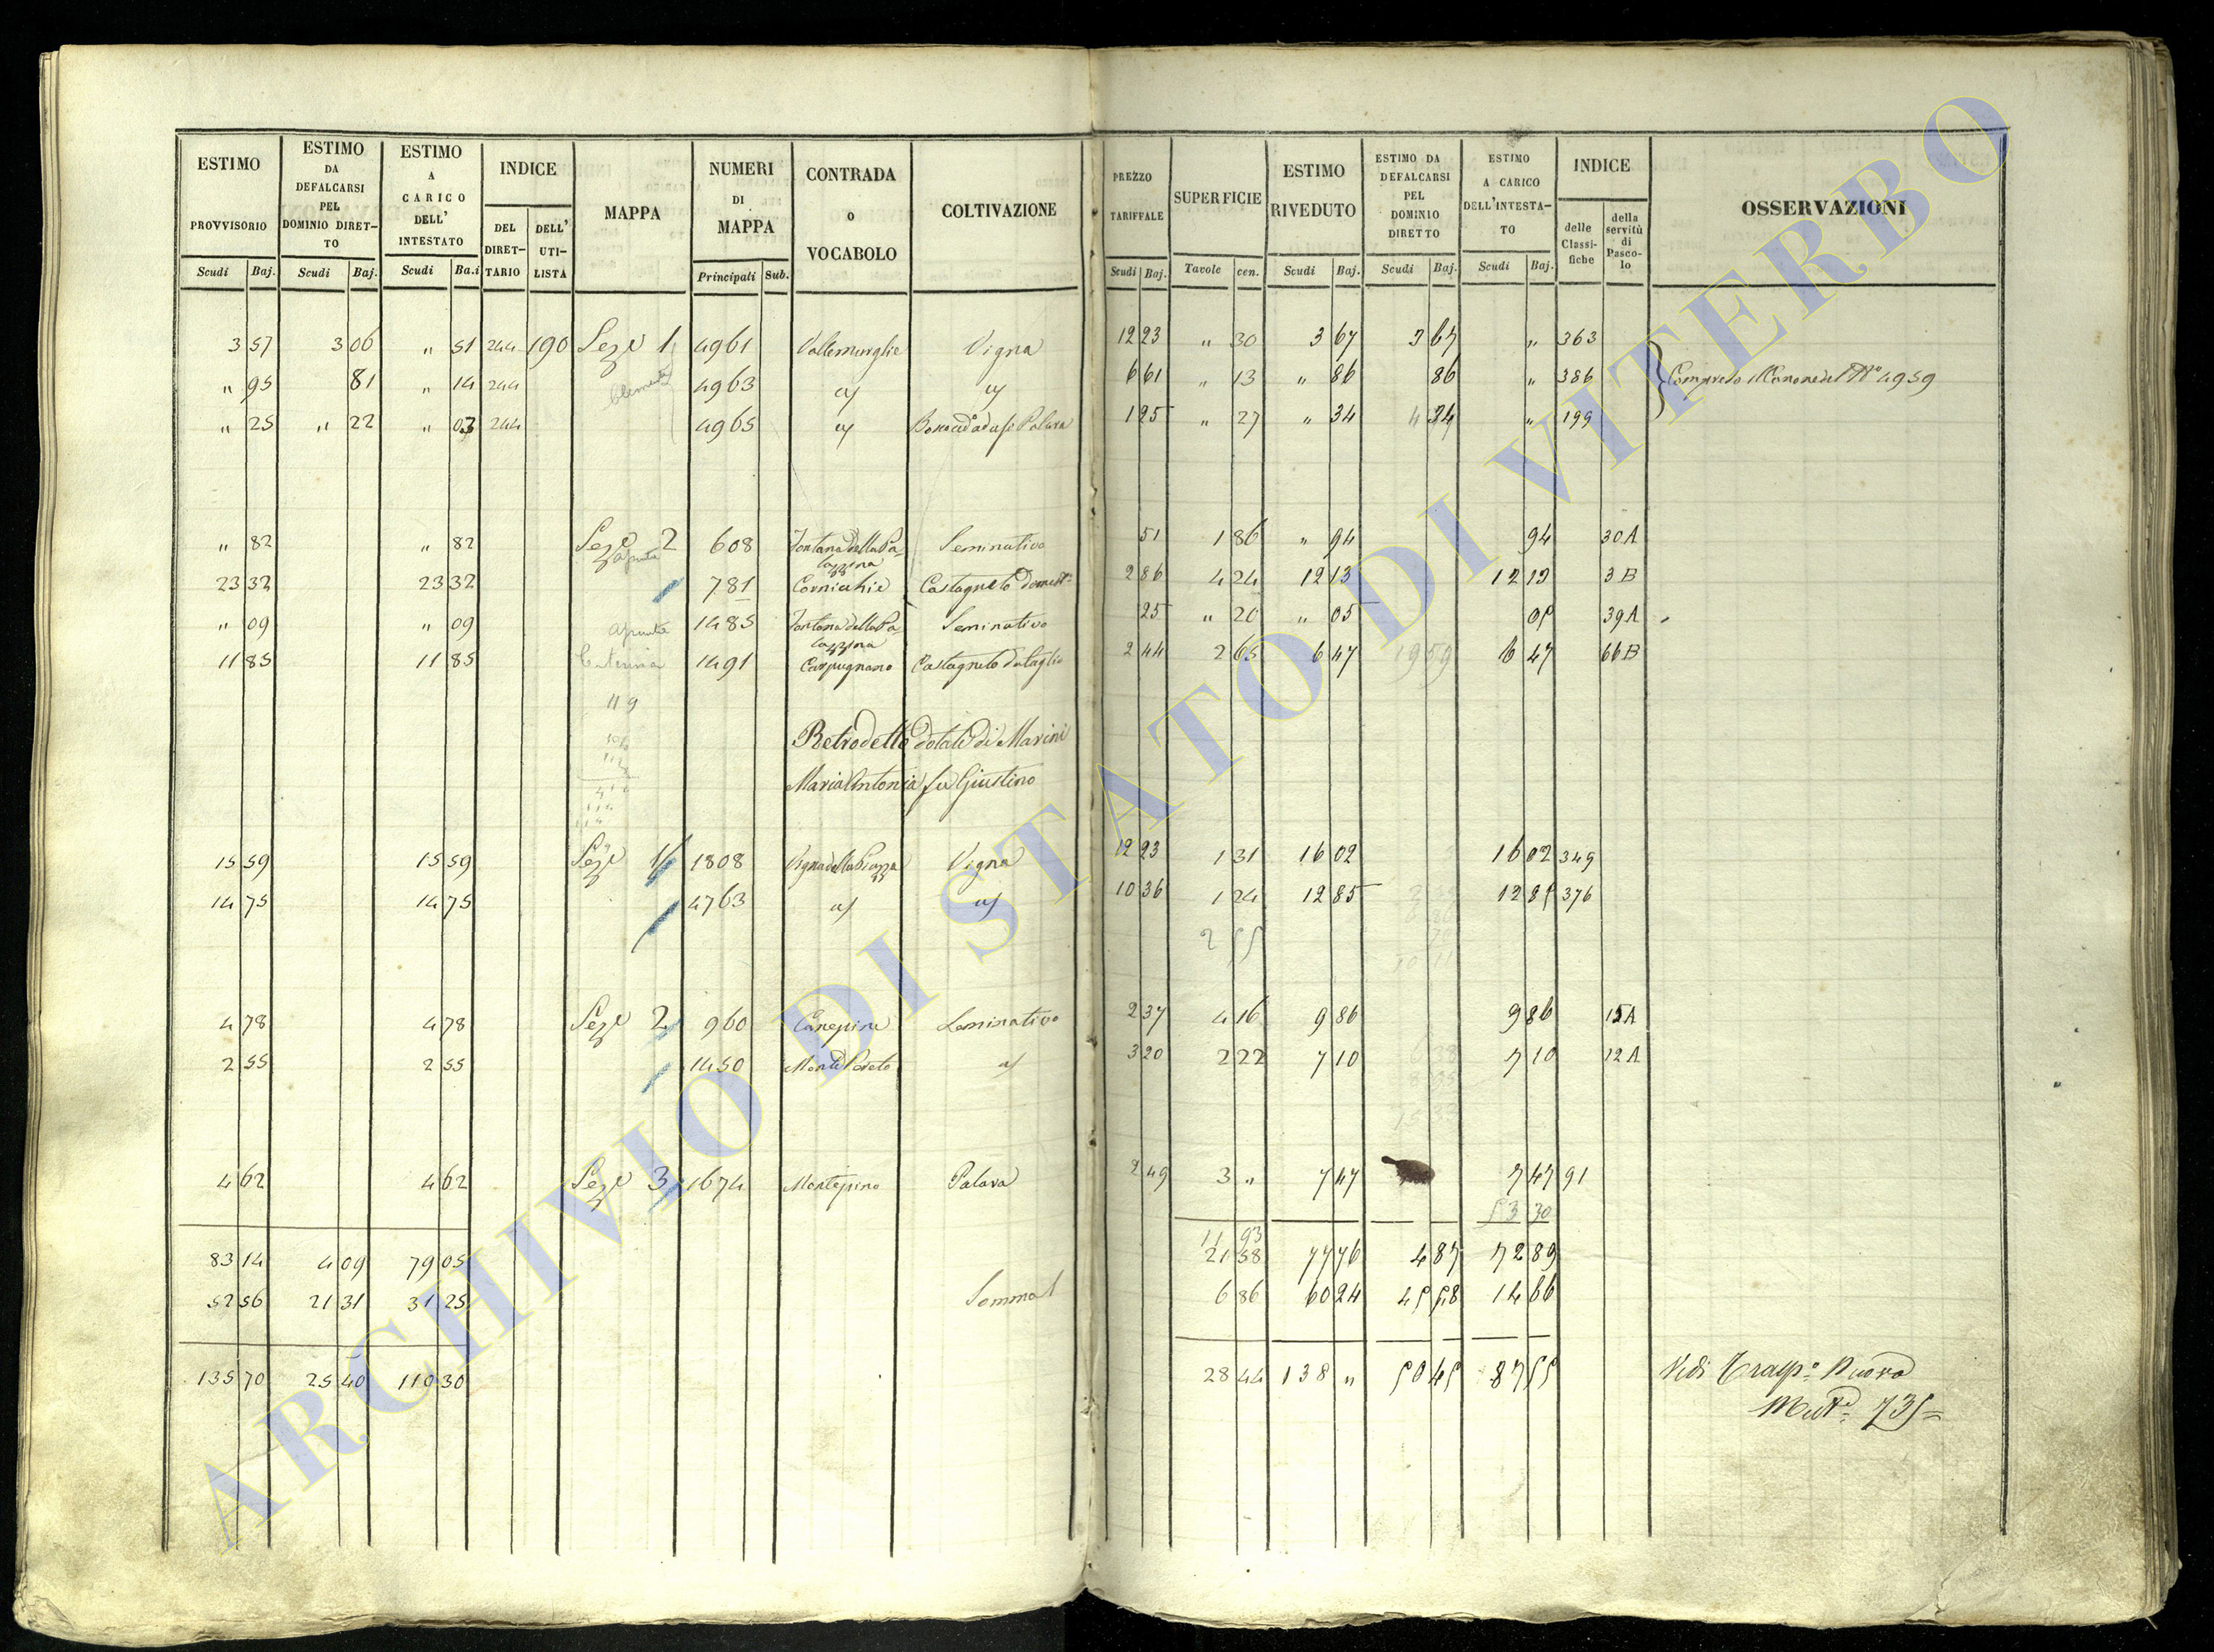 ESTIMO PROVVISORIO Scudi Baj. | ESTIMO DA DEFALCARSI PEL DOMINIO DIRET-TO Scudi Baj. | ESTIMO A CARICO DELL' INTESTATO Scudi Ba.i | INDICE DEL DIRET-TARIO DELL' UTI-LISTA | MAPPA | NUMERI DI MAPPA Principali Sub. | CONTRADA o VOCABOLO | COLTIVAZIONE | PREZZO TARIFFALE Scudi Baj. | SUPERFICIE Tavole cen. | ESTIMO RIVEDUTO Scudi Baj. | ESTIMO DA DEFALCARSI PEL DOMINIO DIRETTO Scudi Baj. | ESTIMO A CARICO DELL'INTESTA-TO Scudi Baj. | INDICE delle Classi-fiche della servitù di Pasco-lo | OSSERVAZIONI
3 57 | 3 06 | " 51 | 244 | 190 | Seze 1 | 4961 | | Vigna | 12 23 | " 30 | 3 67 | 3 67 | " | 363
" 95 | 81 | " 14 | 244 | 4963 | | | 6 61 | " 13 | " 86 | 86 | " | 386 | Compreso il Canone del N° 4959
" 25 | " 22 | " 03 | 244 | 4965 | | | 1 25 | " 27 | " 34 | " 34 | " | 199
" 82 | " 82 | Seze 2 | 608 | Fontana della Pa-lazzina | Seminativo | 51 | 1 86 | " 94 | 94 | 30A
23 32 | 23 32 | 781 | Cornicchie | Castagneto domest° | 2 86 | 4 24 | 12 13 | 12 13 | 3B
" 09 | " 09 | 1485 | Fontana della Pa-lazzina | Seminativo | 25 | " 20 | " 05 | 05 | 39A
11 85 | 11 85 | Caterina | 1491 | Carpugnano | Castagneto da taglio | 2 44 | 2 65 | 6 47 | 6 47 | 66B
119
Retrodette dotali di Marini
Maria Antonia fu Giustino
15 59 | 15 59 | Seze 1 | 1808 | Vigna della Piazza | Vigna | 12 23 | 1 31 | 16 02 | 16 02 | 349
14 75 | 14 75 | 4763 | | | 10 36 | 1 24 | 12 85 | 12 85 | 376
2 55
4 78 | 4 78 | Seze 2 | 960 | Canepine | Seminativo | 2 37 | 4 16 | 9 86 | 9 86 | 15A
2 55 | 2 55 | 1450 | | | 3 20 | 2 22 | 7 10 | 7 10 | 12A
4 62 | 4 62 | Seze 3 | 1674 | Montepino | Palara | 2 49 | 3 " | 7 47 | 7 47 | 91
53 30
11 93
83 14 | 4 09 | 79 05 | 21 58 | 77 76 | 4 87 | 72 89
52 56 | 21 31 | 31 25 | Somma | 6 86 | 60 24 | 45 58 | 14 66
135 70 | 25 40 | 110 30 | 28 44 | 138 " | 50 45 | 87 55 | Vedi Trasp° Nuovo
735
ARCHIVIO DI STATO DI VITERBO